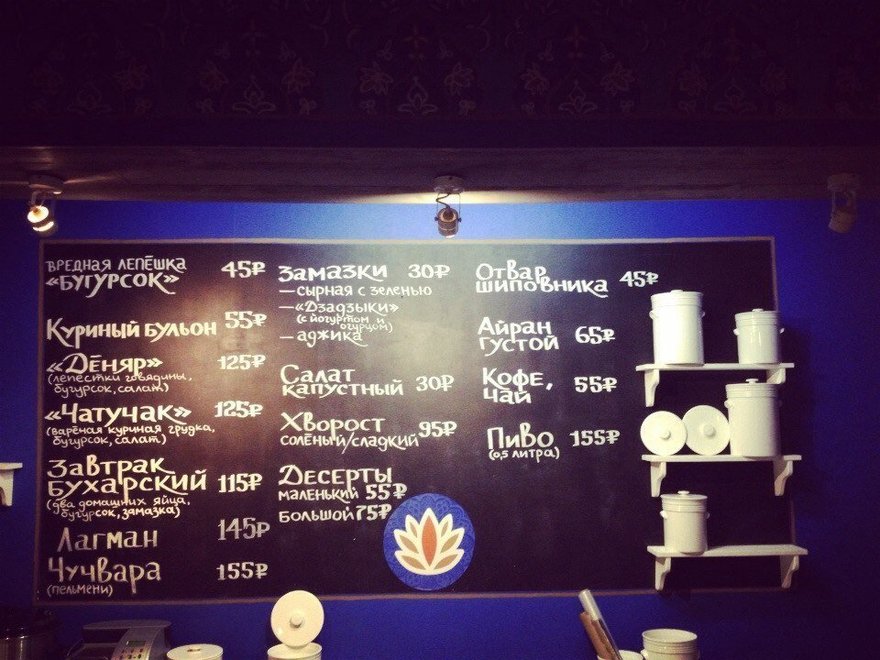 ВРЕДНАЯ ЛЕПЁШКА
«БУГУРСОК» 45₽
Куриный бульон 55₽
«Дёняр» 125₽
(лепестки говядины,
бугурсок, салат)
«Чатучак» 125₽
(варёная куриная грудка,
бугурсок, салат)
Завтрак
Бухарский 115₽
(два домашних яйца,
бугурсок, замазка)
Лагман 145₽
Чучвара 155₽
(пельмени)
Замазки 30₽
– сырная с зеленью
– «Дзадзыки»
(с йогуртом и
огурцом)
– аджика
Салат
капустный 30₽
Хворост
солёный/сладкий 95₽
Десерты
маленький 55₽
большой 75₽
Отвар
шиповника 45₽
Айран
густой 65₽
Кофе,
чай 55₽
Пиво 155₽
(0,5 литра)